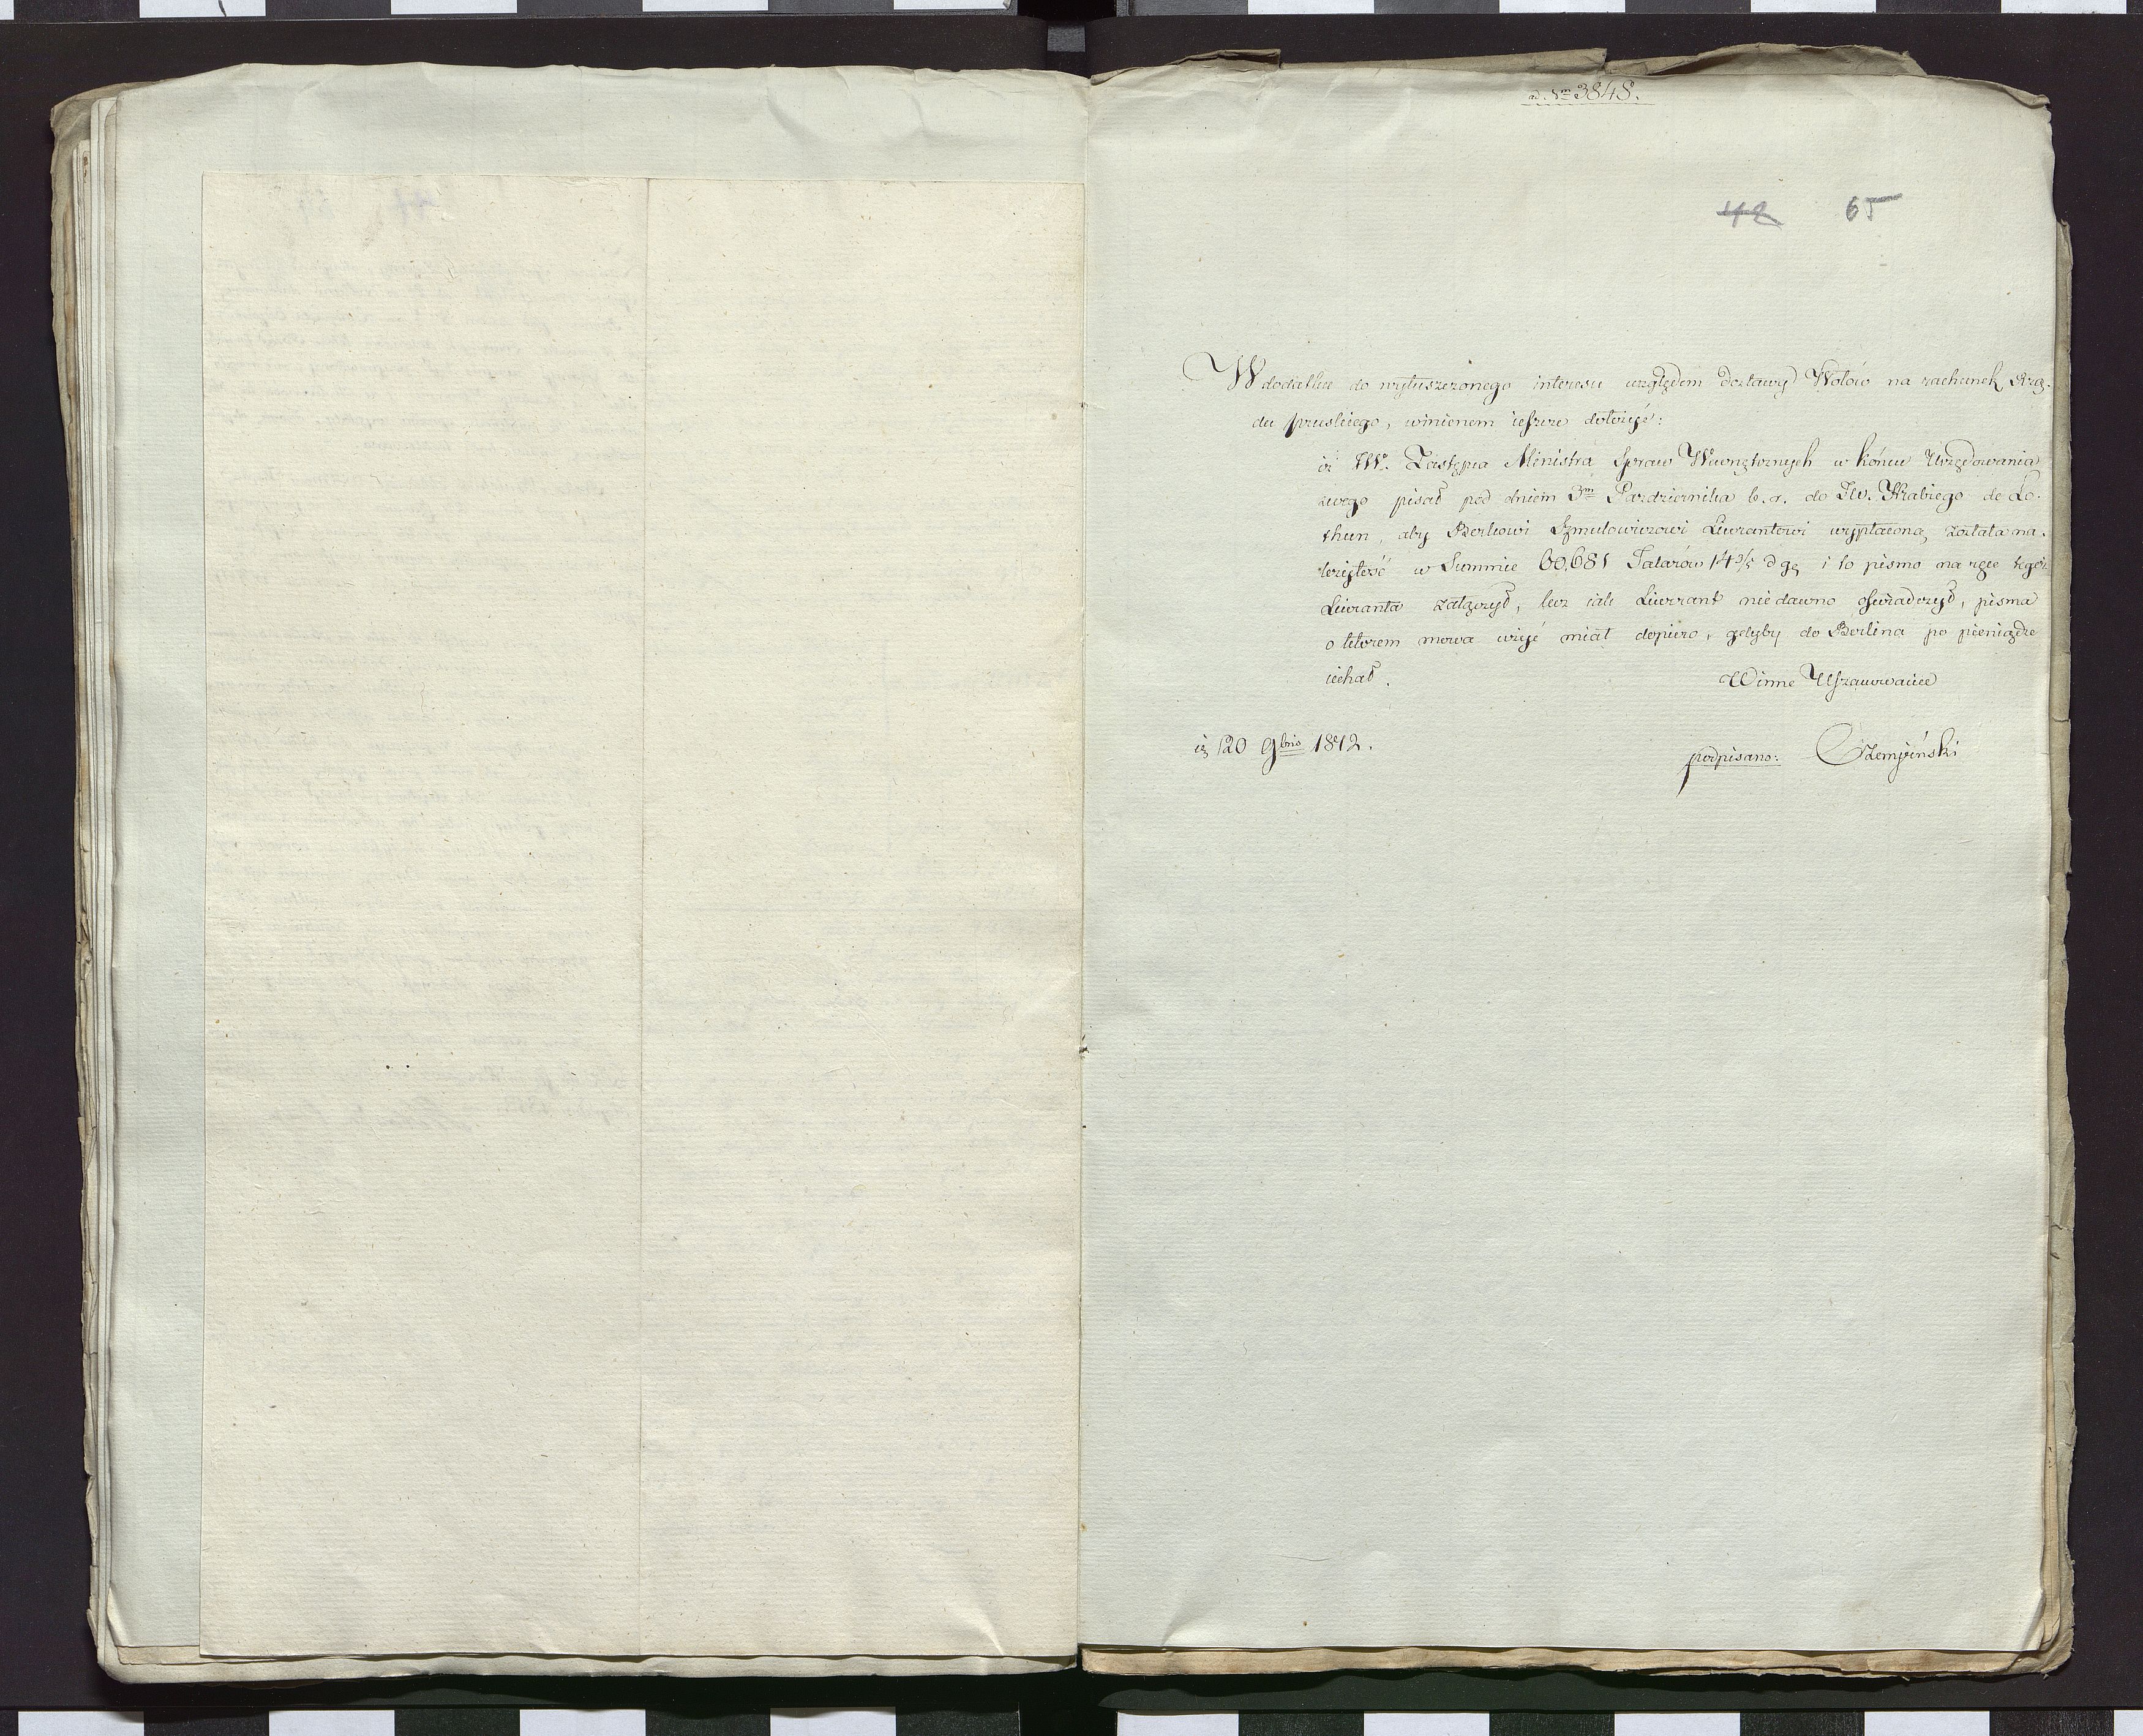 ad Nm 3848.
42 65
W dodatku do wyłuszczonego interesu względem dostawy Wołów na rachunek Rzą-
du pruskiego, winienem ieszcze dołożyć:
iż JW. Zastępca Ministra Spraw Wewnętrznych w końcu Urzędowania
swego pisał pod dniem 3m Pazdziernika b. r. do JW. Hrabiego de Lo-
thun, aby Berkowi Szmulowiczowi Liwerantowi wypłaconą została na-
leżytość w Summie 60,681 Talarów 14 3/5 dgr i to pismo na ręce tegoż
Liweranta załączył, lecz iak Liwerant niedawno oświadczył, pisma
o którem mowa użyć miał dopiero, gdyby do Berlina po pieniądze
iechał.
Winne Uszanowanie
20 9bris 1812.
podpisano: Szempiński